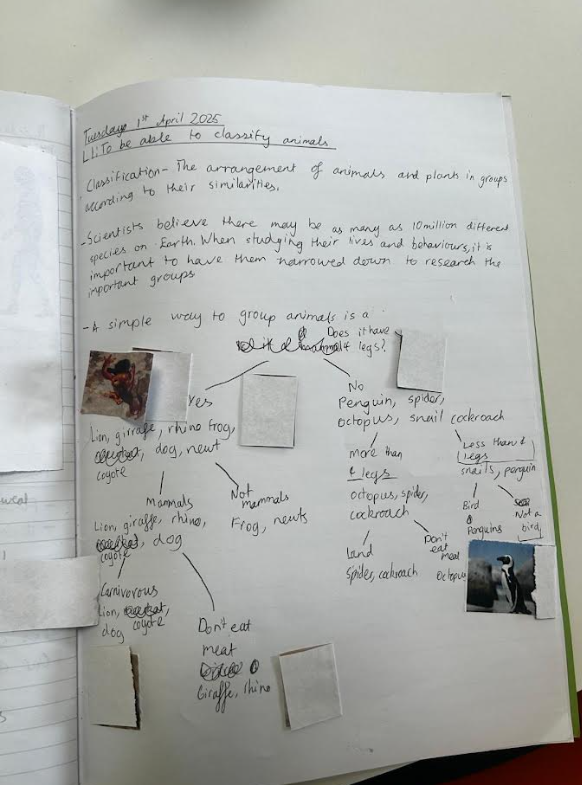 Tuesday 1st April 2025
LI: To be able to classify animals
Classification - The arrangement of animals and plants in groups
according to their similarities.
- Scientists believe there may be as many as 10 million different
species on Earth. When studying their lives and behaviours, it is
important to have them narrowed down to research the
important groups
- A simple way to group animals is a
Does it have
4 legs?
Yes
No
Lion, girrafe, rhino frog,
dog, newt
coyote
Penguin, spider,
octopus, snail cockroach
Mammals
Lion, giraffe, rhino,
dog
coyote
Not
mammals
Frog, newts
more than
4 legs
octopus, spider,
cockroach
Less than 4
legs
snails, penguin
Bird
Penguins
Not a
bird
Land
Spider, cockroach
Don't
eat
meat
Octopus
Carnivorous
Lion,
coyote
dog
Don't eat
meat
Giraffe, rhino